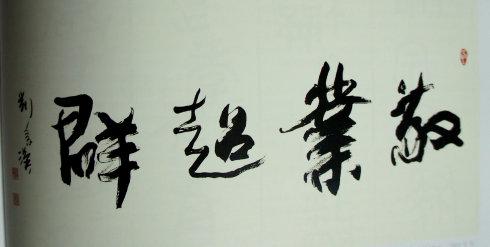 敬業超群